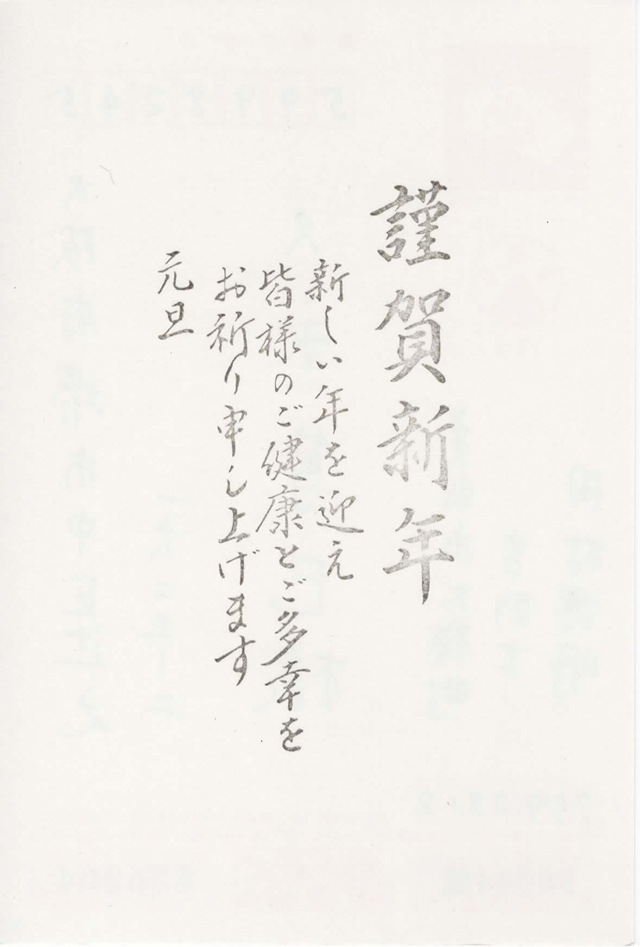 謹賀新年
新しい年を迎え
皆様のご健康とご多幸を
お祈り申し上げます
元旦